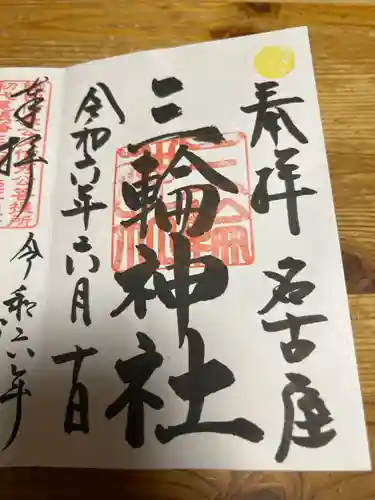 奉拝
名古屋
三輪神社
令和六年六月十日
奉拝
令和六年